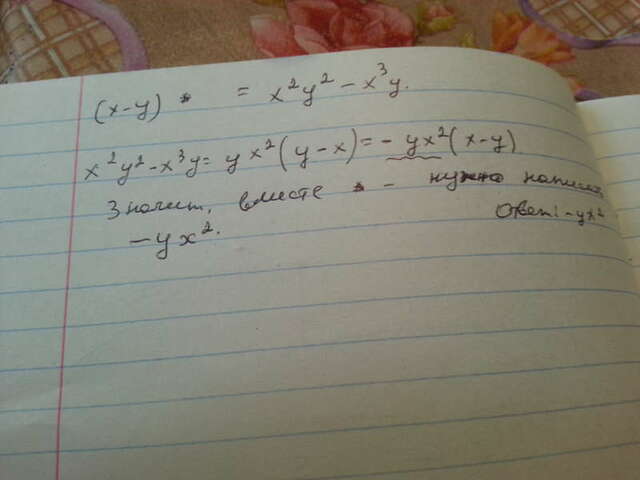 (x-y) * = x²y² - x³y.
x²y² - x³y = yx²(y-x) = -yx²(x-y)
Значит, вместо * - нужно написать
-yx². Ответ: -yx²